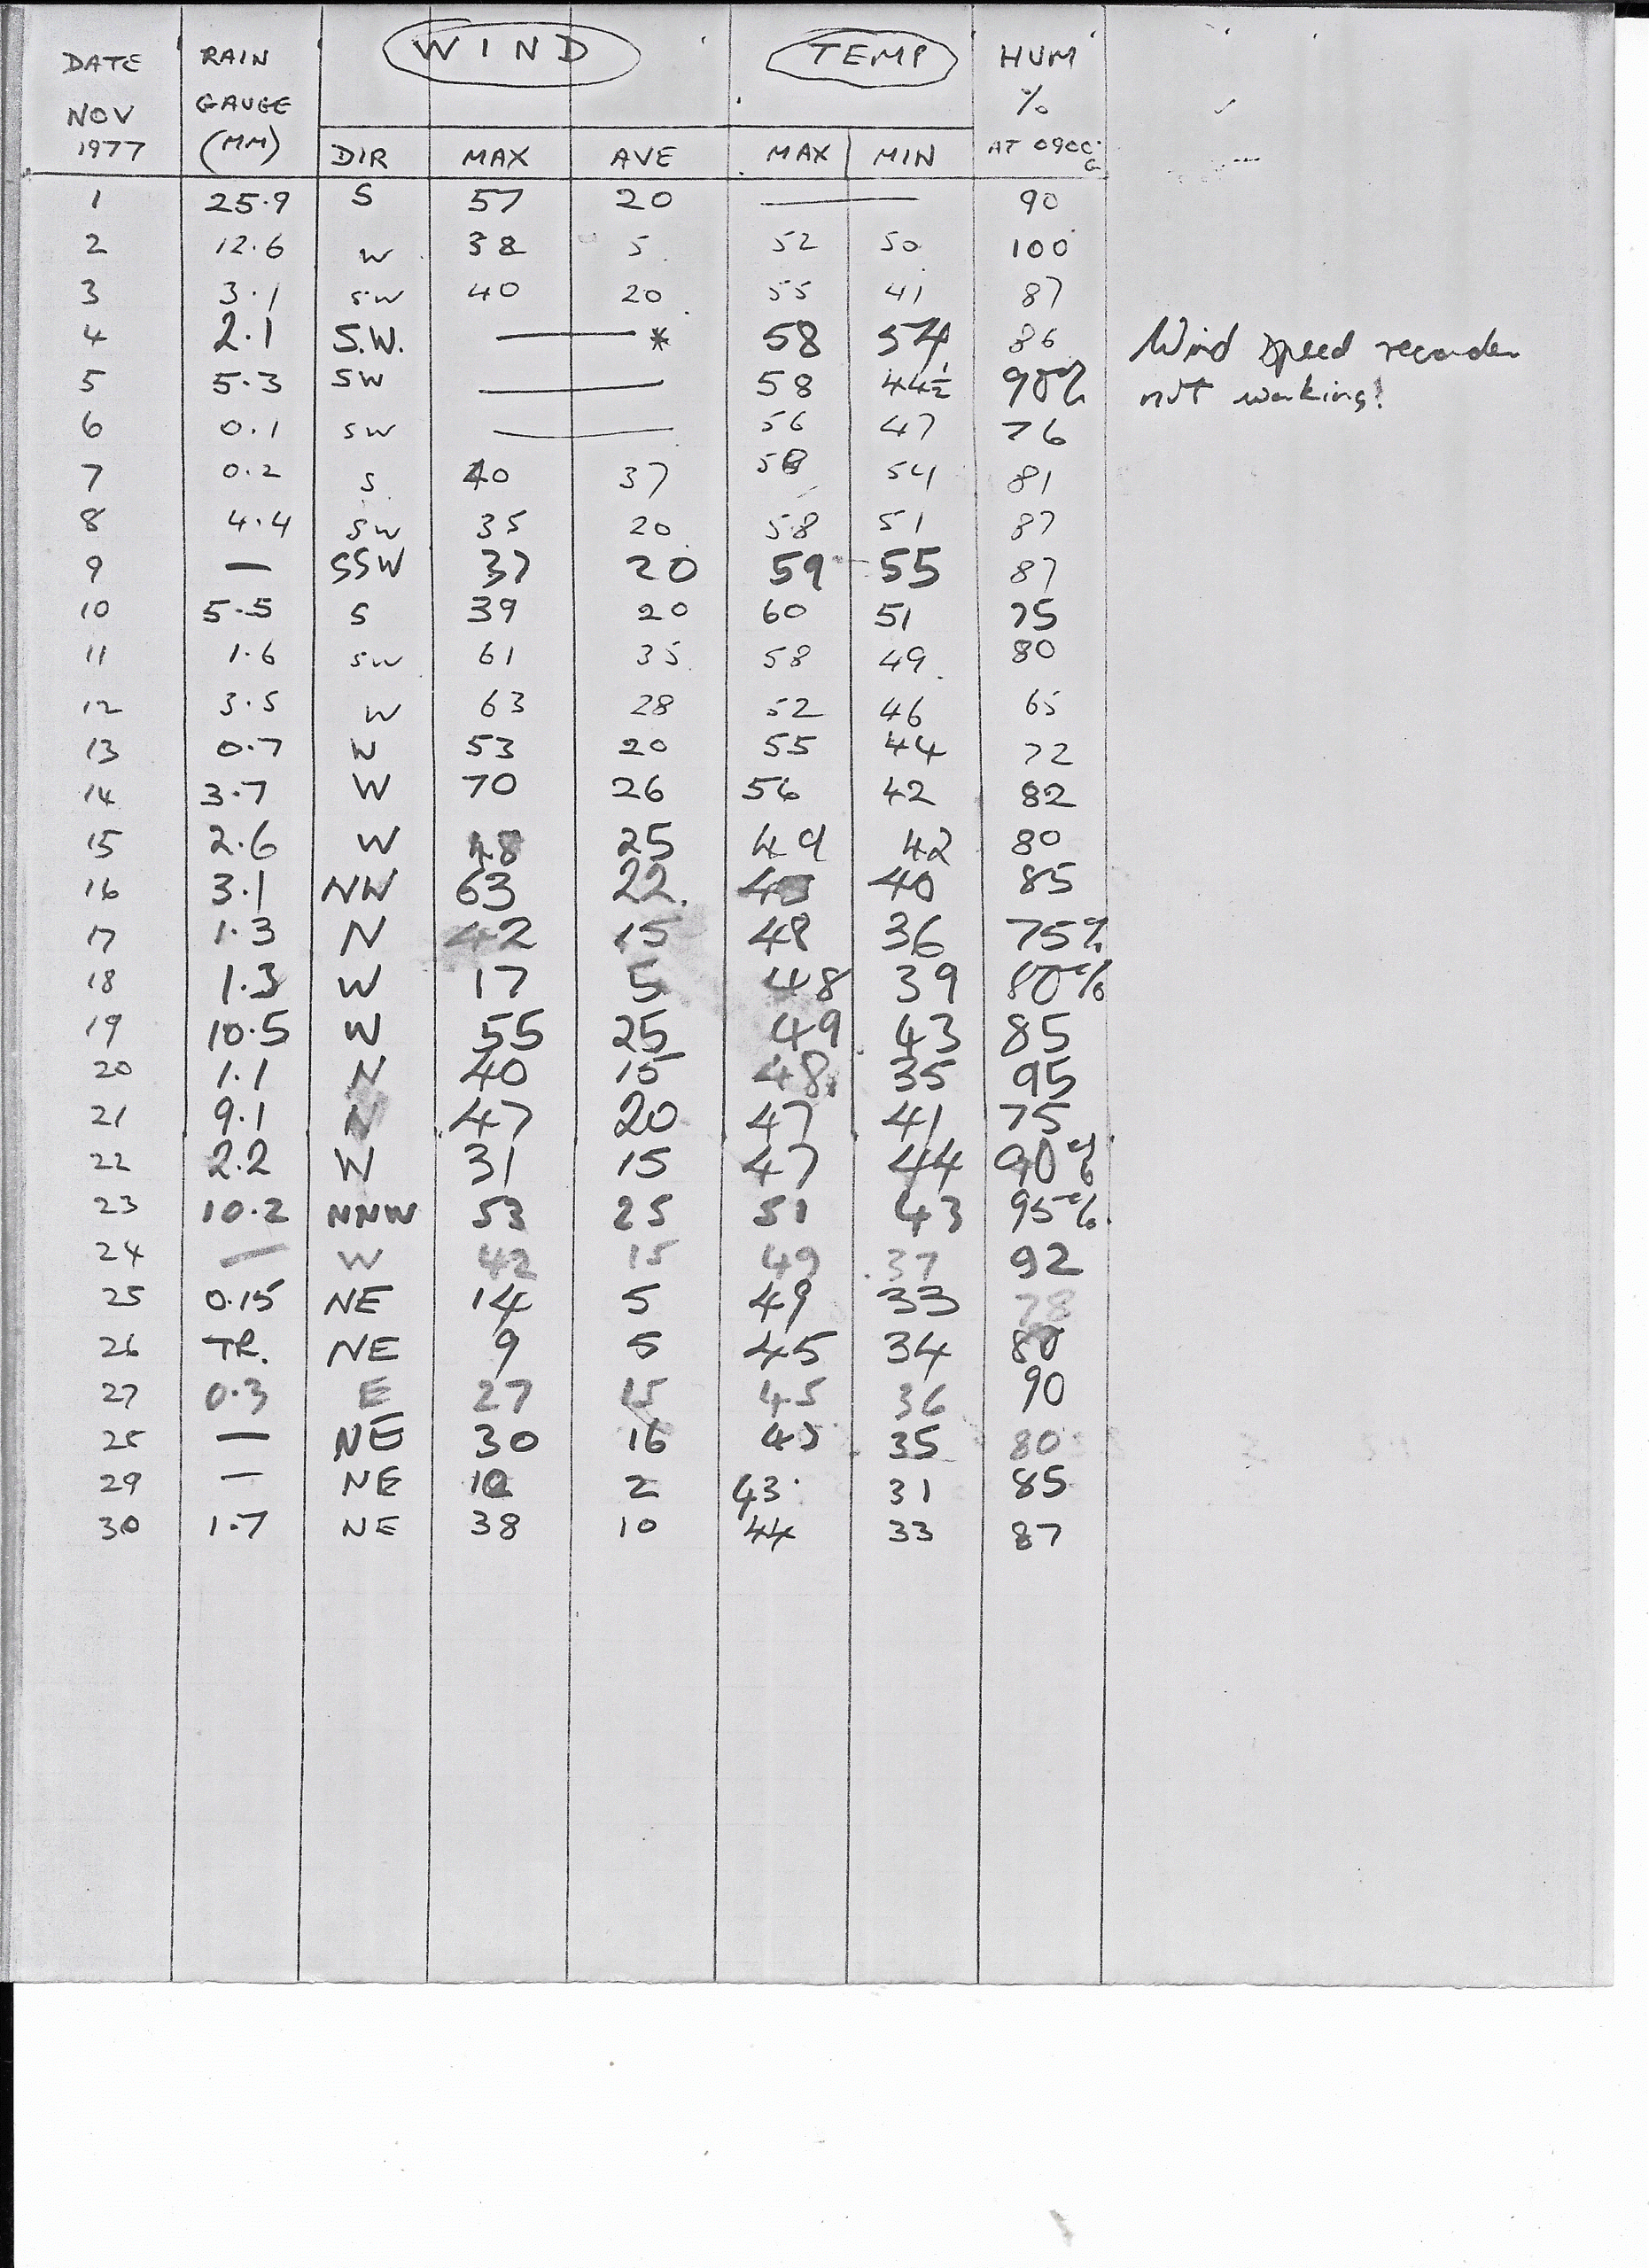 DATE RAIN WIND TEMP HUM
NOV GAUGE %
1977 (MM) DIR MAX AVE MAX MIN AT 0900 G
1 25.9 S 57 20 — 90
2 12.6 W 38 5 52 50 100
3 3.1 SW 40 20 55 41 87
4 2.1 S.W. — * 58 54 86 Wind speed recorder
5 5.3 SW — 58 44½ 90% not working!
6 0.1 SW — 56 47 76
7 0.2 S 40 37 58 54 81
8 4.4 SW 35 20 58 51 87
9 — SSW 37 20 59 55 87
10 5.5 S 39 20 60 51 75
11 1.6 SW 61 35 58 49 80
12 3.5 W 63 28 52 46 65
13 0.7 W 53 20 55 44 72
14 3.7 W 70 26 56 42 82
15 2.6 W 48 25 49 42 80
16 3.1 NW 63 22 40 85
17 1.3 N 42 15 48 36 75%
18 1.3 W 17 5 48 39 80%
19 10.5 W 55 25 49 43 85
20 1.1 N 40 15 48 35 95
21 9.1 N 47 20 47 41 75
22 2.2 W 31 15 47 44 90%
23 10.2 NNW 53 25 51 43 95%
24 — W 42 15 49 37 92
25 0.15 NE 14 5 49 33 78
26 TR. NE 9 5 45 34 80
27 0.3 E 27 15 45 36 90
28 — NE 30 16 45 35 80
29 — NE 2 43 31 85
30 1.7 NE 38 10 44 33 87